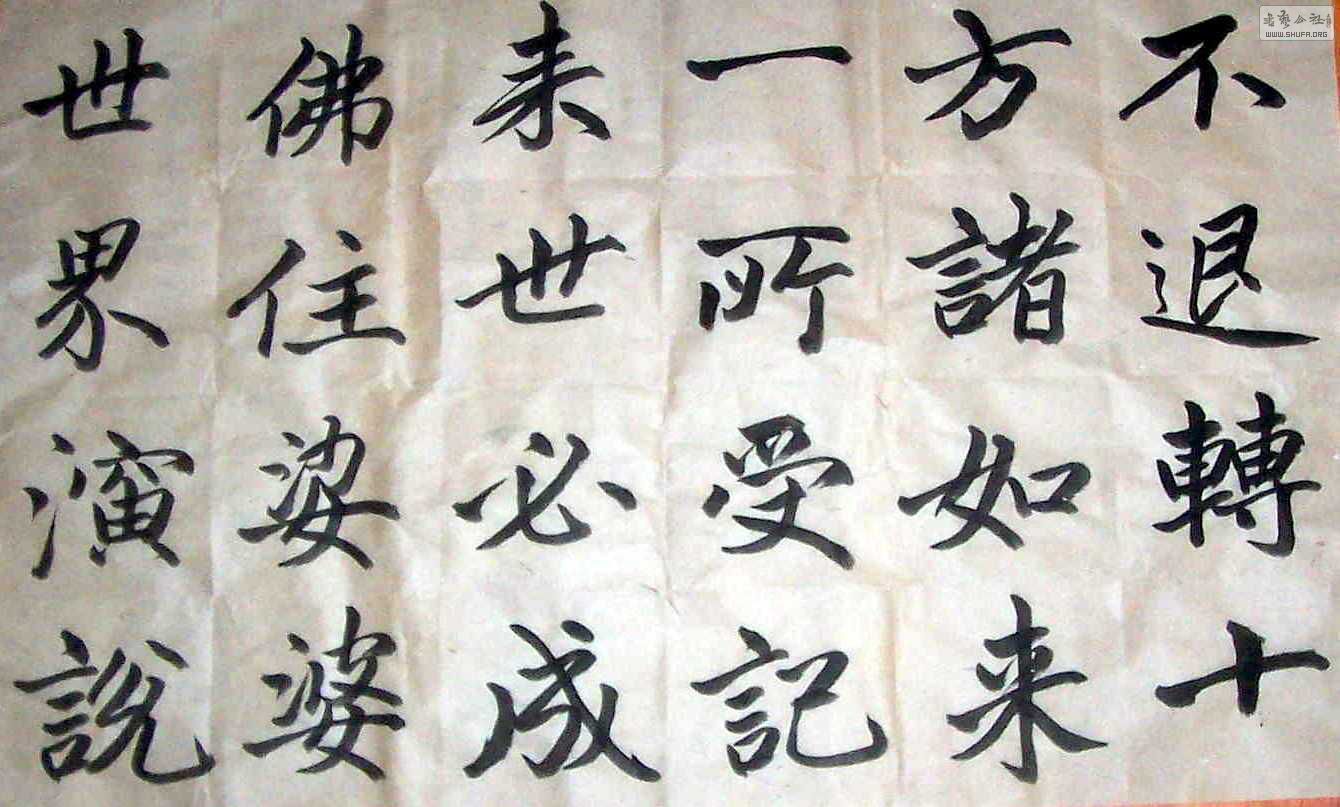 不退轉十
方諸如来
一所受記
未世必成
佛住娑婆
世界演說
WWW.SHUFA.ORG